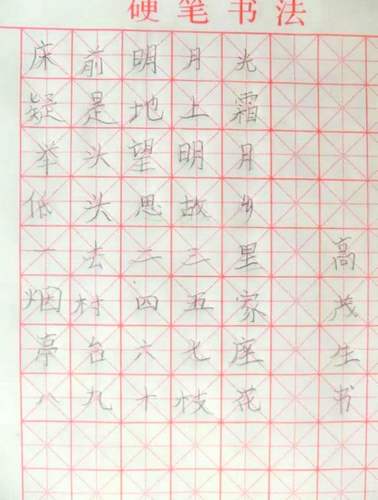 硬笔书法
床前明月光
疑是地上霜
举头望明月
低头思故乡
一去二三里
烟村四五家
亭台六七座
八九十枝花
高茂生书